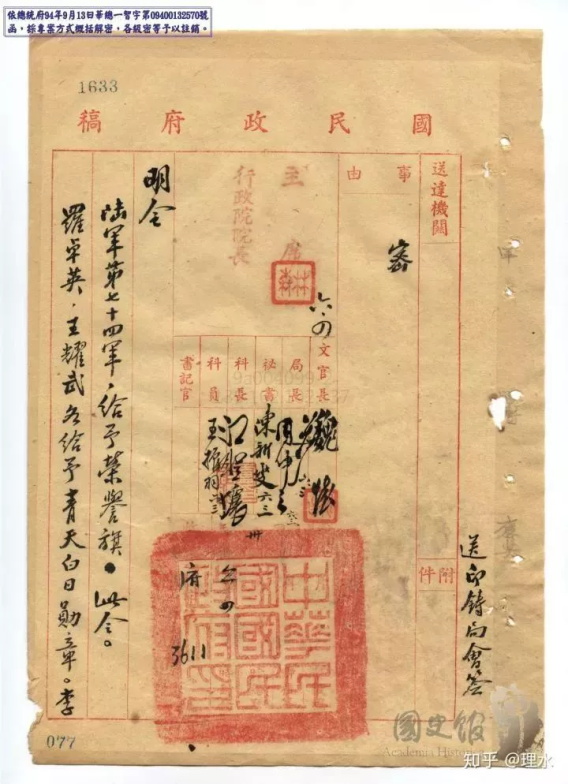 依總統府94年9月13日華總一智字第09400132570號
函，採專案方式概括解密，各級密等予以註銷。
1633
國民政府稿
送達機關
事由
密
附件
送印鑄局會簽
主席
林森
行政院院長
六、四
文官長
魏懷
局長
六、三
秘書
陳新燮 六、三
科長
科員
王推羽 六、三
書記官
中華民國國民政府印
府
六 四
3611
明令
陸軍第七十四軍，給予榮譽旗。此令。
羅卓英，王耀武各給予青天白日勳章。李
077
國史館
Academia Historica
知乎 @理水